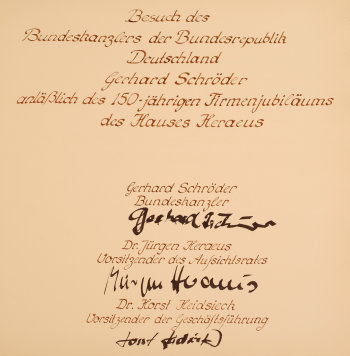 Besuch des
Bundeskanzlers der Bundesrepublik
Deutschland
Gerhard Schröder
anläßlich des 150-jährigen Firmenjubiläums
des Hauses Heraeus
Gerhard Schröder
Bundeskanzler
Gerhard Schröder
Dr. Jürgen Heraeus
Vorsitzender des Aufsichtsrates
Jürgen Heraeus
Dr. Horst Heidsieck
Vorsitzender der Geschäftsführung
Horst